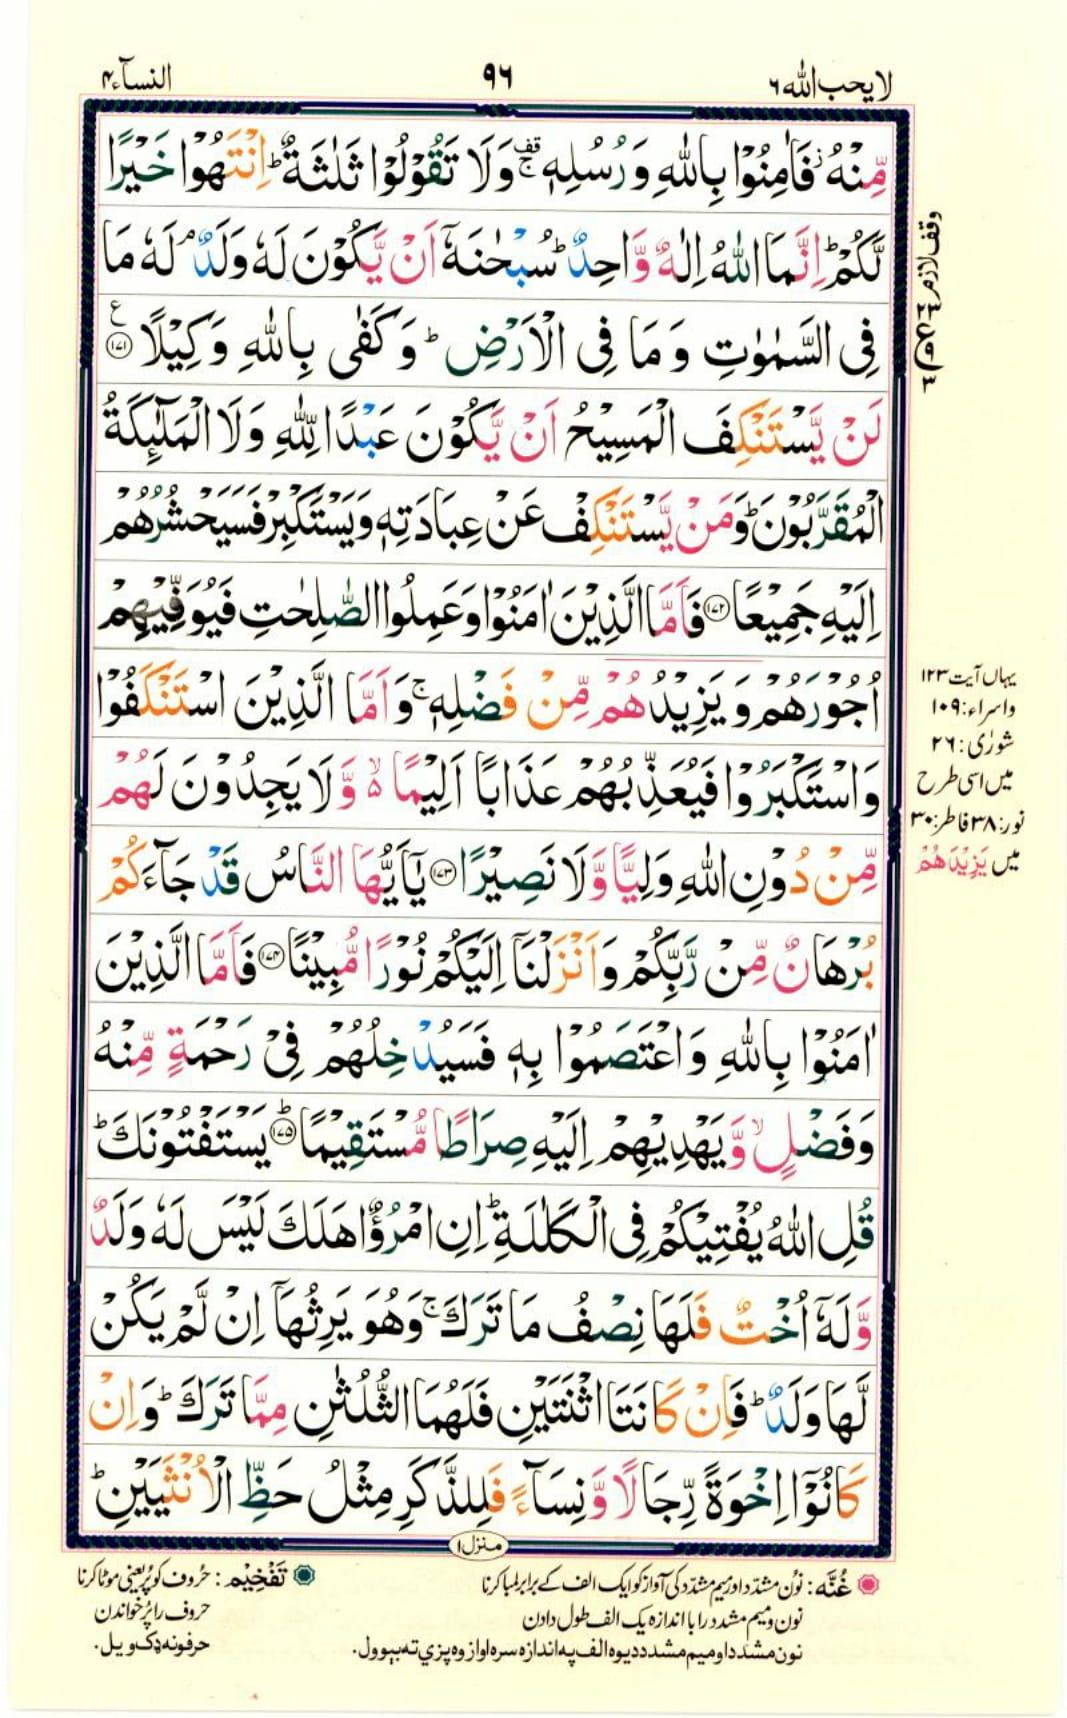 لا يحب الله ٦
٩٦
النسآء ٤
مِّنْهُ ۫ فَاٰمِنُوْا بِاللّٰهِ وَرُسُلِهٖ ۚ۟ وَلَا تَقُوْلُوْا ثَلٰثَةٌ ؕ اِنْتَهُوْا خَيْرًا
لَّكُمْ ؕ اِنَّمَا اللّٰهُ اِلٰهٌ وَّاحِدٌ ؕ سُبْحٰنَهٗۤ اَنْ يَّكُوْنَ لَهٗ وَلَدٌ ۘ لَهٗ مَا
فِى السَّمٰوٰتِ وَمَا فِى الْاَرْضِ ؕ وَكَفٰى بِاللّٰهِ وَكِيْلًا ﴿١٧١﴾ ع
لَنْ يَّسْتَنْكِفَ الْمَسِيْحُ اَنْ يَّكُوْنَ عَبْدًا لِّلّٰهِ وَلَا الْمَلٰٓئِكَةُ
الْمُقَرَّبُوْنَ ؕ وَمَنْ يَّسْتَنْكِفْ عَنْ عِبَادَتِهٖ وَيَسْتَكْبِرْ فَسَيَحْشُرُهُمْ
اِلَيْهِ جَمِيْعًا ﴿١٧٢﴾ فَاَمَّا الَّذِيْنَ اٰمَنُوْا وَعَمِلُوا الصّٰلِحٰتِ فَيُوَفِّيْهِمْ
اُجُوْرَهُمْ وَيَزِيْدُهُمْ مِّنْ فَضْلِهٖ ۚ وَاَمَّا الَّذِيْنَ اسْتَنْكَفُوْا
وَاسْتَكْبَرُوْا فَيُعَذِّبُهُمْ عَذَابًا اَلِيْمًا ۙ۬ وَّلَا يَجِدُوْنَ لَهُمْ
مِّنْ دُوْنِ اللّٰهِ وَلِيًّا وَّلَا نَصِيْرًا ﴿١٧٣﴾ يٰۤاَيُّهَا النَّاسُ قَدْ جَآءَكُمْ
بُرْهَانٌ مِّنْ رَّبِّكُمْ وَاَنْزَلْنَاۤ اِلَيْكُمْ نُوْرًا مُّبِيْنًا ﴿١٧٤﴾ فَاَمَّا الَّذِيْنَ
اٰمَنُوْا بِاللّٰهِ وَاعْتَصَمُوْا بِهٖ فَسَيُدْخِلُهُمْ فِىْ رَحْمَةٍ مِّنْهُ
وَفَضْلٍ ۙ وَّيَهْدِيْهِمْ اِلَيْهِ صِرَاطًا مُّسْتَقِيْمًا ﴿١٧٥﴾ؕ يَسْتَفْتُوْنَكَ ؕ
قُلِ اللّٰهُ يُفْتِيْكُمْ فِى الْكَلٰلَةِ ؕ اِنِ امْرُؤٌا هَلَكَ لَيْسَ لَهٗ وَلَدٌ
وَّلَهٗۤ اُخْتٌ فَلَهَا نِصْفُ مَا تَرَكَ ۚ وَهُوَ يَرِثُهَاۤ اِنْ لَّمْ يَكُنْ
لَّهَا وَلَدٌ ؕ فَاِنْ كَانَتَا اثْنَتَيْنِ فَلَهُمَا الثُّلُثٰنِ مِمَّا تَرَكَ ؕ وَاِنْ
كَانُوْۤا اِخْوَةً رِّجَالًا وَّنِسَآءً فَلِلذَّكَرِ مِثْلُ حَظِّ الْاُنْثَيَيْنِ ؕ
وقف لازم
یہاں آیت ١٢٣
واسراء: ١٠٩
شورٰی: ٢٦
میں اسی طرح
نور: ٣٨ فاطر: ٣٠
میں يَزِيْدَهُمْ
منزل ١
غُنَّه: نون مشدّد اور میم مشدّد کی آواز کو ایک الف کے برابر لمبا کرنا
نون و میم مشدد را با اندازه یک الف طول دادن
نون مشدد او میم مشدد د یوه الف په اندازه سره اواز وه پزي ته بېوول.
تَفْخِيْم: حُروف کو پُر یعنی موٹا کرنا
حروف را پُر خواندن
حرفونه ډک ویل.